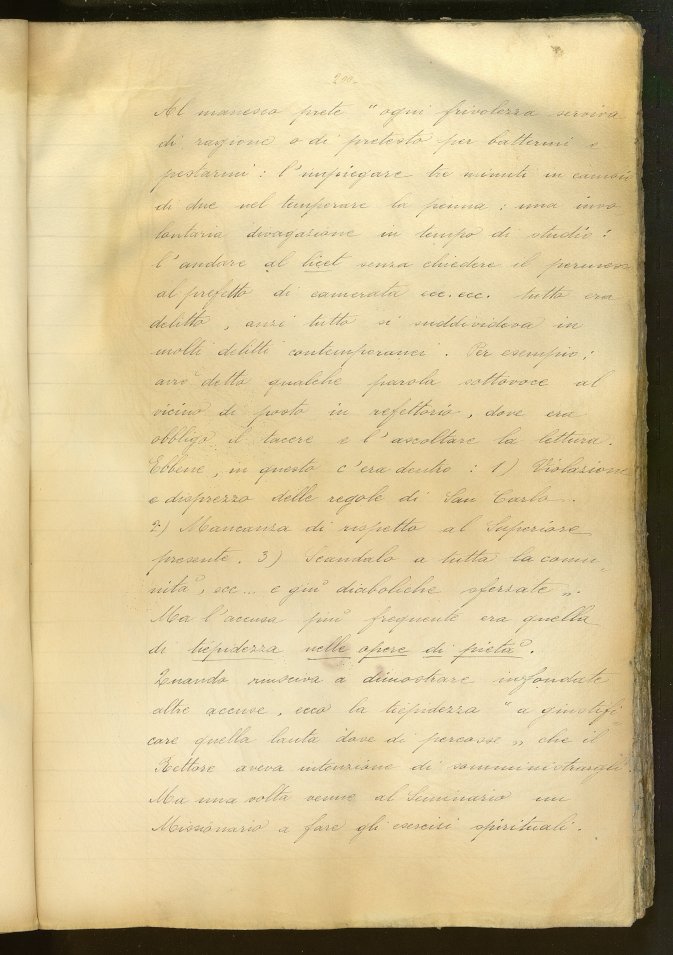 200.
Al manesco prete "ogni frivolezza serviva
di ragione o di pretesto per battermi e
pestarmi: l'impiegare tre minuti in cambio
di due nel temperare la penna; una invo
lontaria divagazione in tempo di studio:
l'andare al licet senza chiedere il permesso
al prefetto di camerata ecc. ecc. tutto era
delitto, anzi tutto si suddivideva in
molti delitti contemporanei. Per esempio:
avrò detto qualche parola sottovoce al
vicino di posto in refettorio, dove era
obbligo il tacere e l'ascoltare la lettura.
Ebbene, in questo c'era dentro: 1) Violazione
e disprezzo delle regole di San Carlo.
2) Mancanza di rispetto al Superiore
presente. 3) Scandalo a tutta la comu-
nità, ecc... e giù diaboliche sferzate".
Ma l'accusa più frequente era quella
di tiepidezza nelle opere di pietà.
Quando riusciva a dimostrare infondate
altre accuse, ecco la tiepidezza "a giustifi-
care quella lauta dose di percosse" che il
Rettore aveva intenzione di somministrargli.
Ma una volta venne al Seminario un
Missionario a fare gli esercizi spirituali.